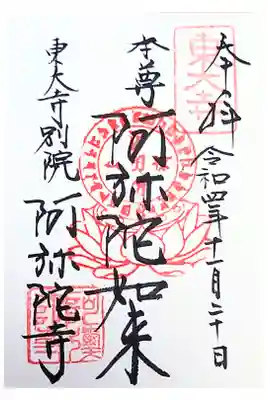 奉拝
令和四年十一月二十日
東大寺
本尊
阿弥陀如来
東大寺別院
阿弥陀寺